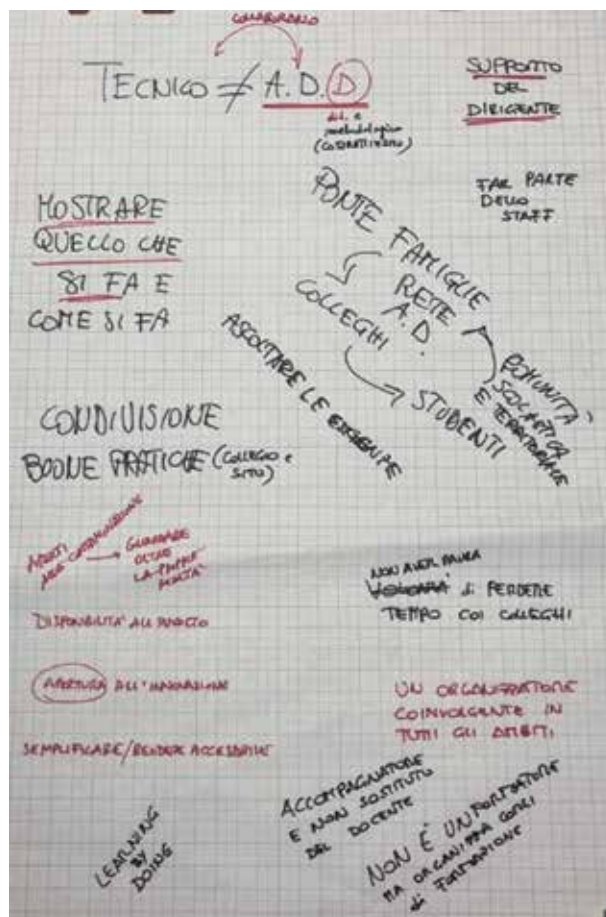 COLLABORANO
TECNICO ≠ A.D.D
did. e
metodologico
(COSTRUTTIVISTA)
SUPPORTO
DEL
DIRIGENTE
FAR PARTE
DELLO
STAFF
MOSTRARE
QUELLO CHE
SI FA E
COME SI FA
PONTE FAMIGLIE
RETE
A.D.
COLLEGHI
STUDENTI
COMUNITÀ
SCOLASTICA
E TERRITORIALE
ASCOLTARE LE ESIGENZE
CONDIVISIONE
BUONE PRATICHE (COLLEGIO e
SITO)
APERTI
ALLA CONTAMINAZIONE
→ GUARDARE
OLTRE
LA PROPRIA
REALTÀ
DISPONIBILITÀ ALL'ASCOLTO
APERTURA ALL'INNOVAZIONE
SEMPLIFICARE/RENDERE ACCESSIBILE
NON AVER PAURA
di PERDERE
TEMPO COI COLLEGHI
UN ORGANIZZATORE
COINVOLGENTE IN
TUTTI GLI AMBITI
LEARNING
BY
DOING
ACCOMPAGNATORE
E NON SOSTITUTO
DEL DOCENTE
NON È UN FORMATORE
MA ORGANIZZA CORSI
di FORMAZIONE